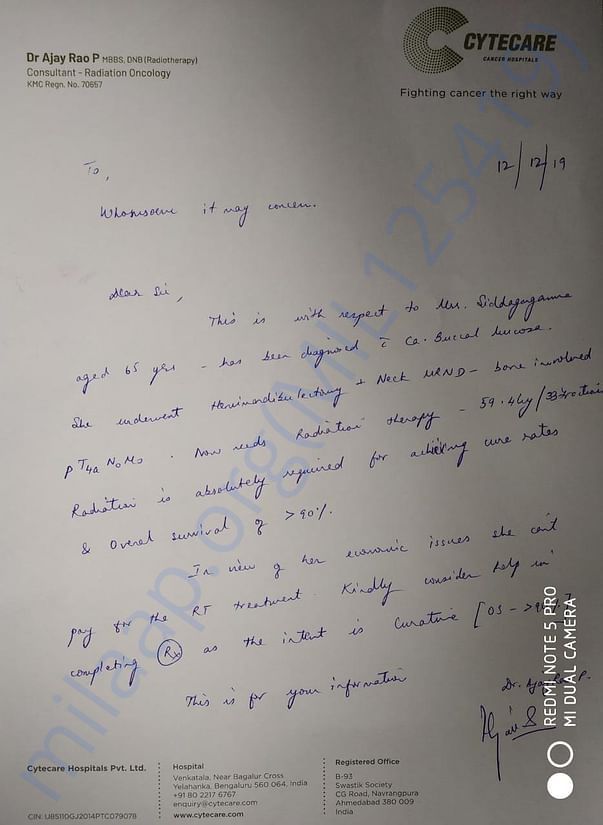 Dr Ajay Rao P MBBS, DNB (Radiotherapy)
Consultant - Radiation Oncology
KMC Regn. No. 70657
CYTECARE
CANCER HOSPITALS
Fighting cancer the right way
12/12/19
To,
it may concern.
Dear Sir,
This is with respect to Mrs. Siddagangamma
aged 65 yrs - has been diagnosed c̄ Ca. Buccal Mucosa.
She underwent Hemimandibulectomy + Neck MRND - bone involved
pT4a N0 M0. Now needs Radiation therapy - 59.4Gy/33
Radiation is absolutely required for achieving cure rates
& Overal survival of >90%.
In view of her economic issues she can't
pay for the RT treatment. Kindly consider help in
completing Rx as the intent is Curative [OS - >90%]
This is for your information
Dr. Ajay Rao P.
milaap.org(MIL1254191)
REDMI NOTE 5 PRO
MI DUAL CAMERA
Cytecare Hospitals Pvt. Ltd.
CIN: U85110GJ2014PTC079078
Hospital
Venkatala, Near Bagalur Cross
Yelahanka, Bengaluru 560 064, India
+91 80 2217 6767
enquiry@cytecare.com
www.cytecare.com
Registered Office
B-93
Swastik Society
CG Road, Navrangpura
Ahmedabad 380 009
India